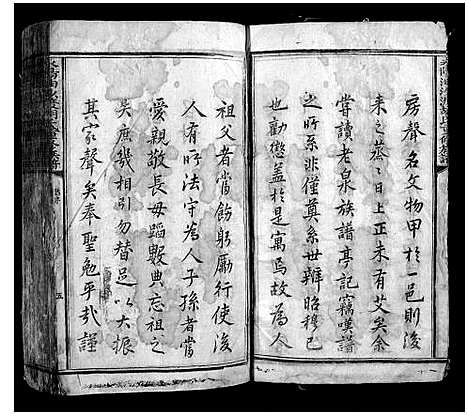 房聲名文物甲於一邑則後
來之蒸蒸日上正未有艾矣余
嘗讀老泉族譜亭記竊嘆譜
之所系非僅奠系世辨昭穆已
也勸懲蓋於是寓焉故為人
祖父者當飭躬勵行使後
人有所法守為人子孫者當
愛親敬長毋蹈數典忘祖之
失庶幾相勖勿替足以大振
其家聲矣奉聖勉乎哉謹
五